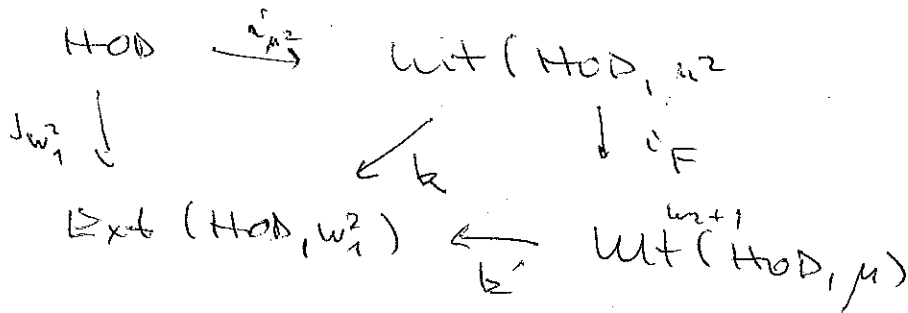 HOD i_μ² Ult(HOD, μ²
j_w₁² k i_F
Ext (HOD, w₁²) k' Ult(HOD, μ)